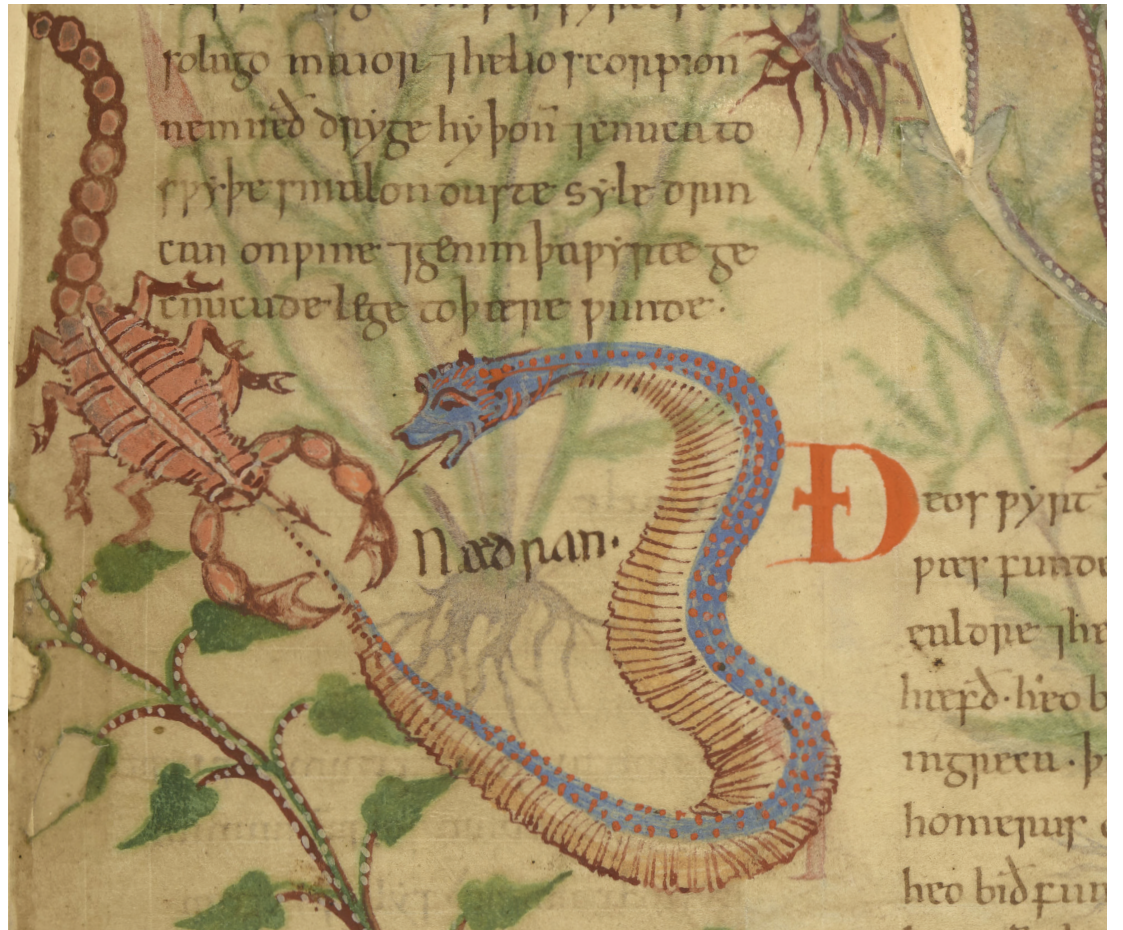 solago maior ⁊ helioscorpion
nemneð dryge hy þoñ ⁊ cnuca to
sƿyþe smalon duste syle drin
can on ƿine ⁊ genim þa ƿyrte ge
cnucude lege to þære ƿunde·
Nædran·
Ðeos ƿyrt
ƿæs funde
ealdre ⁊ he
hæfð· heo b
in greca·
homerus
heo bið fun